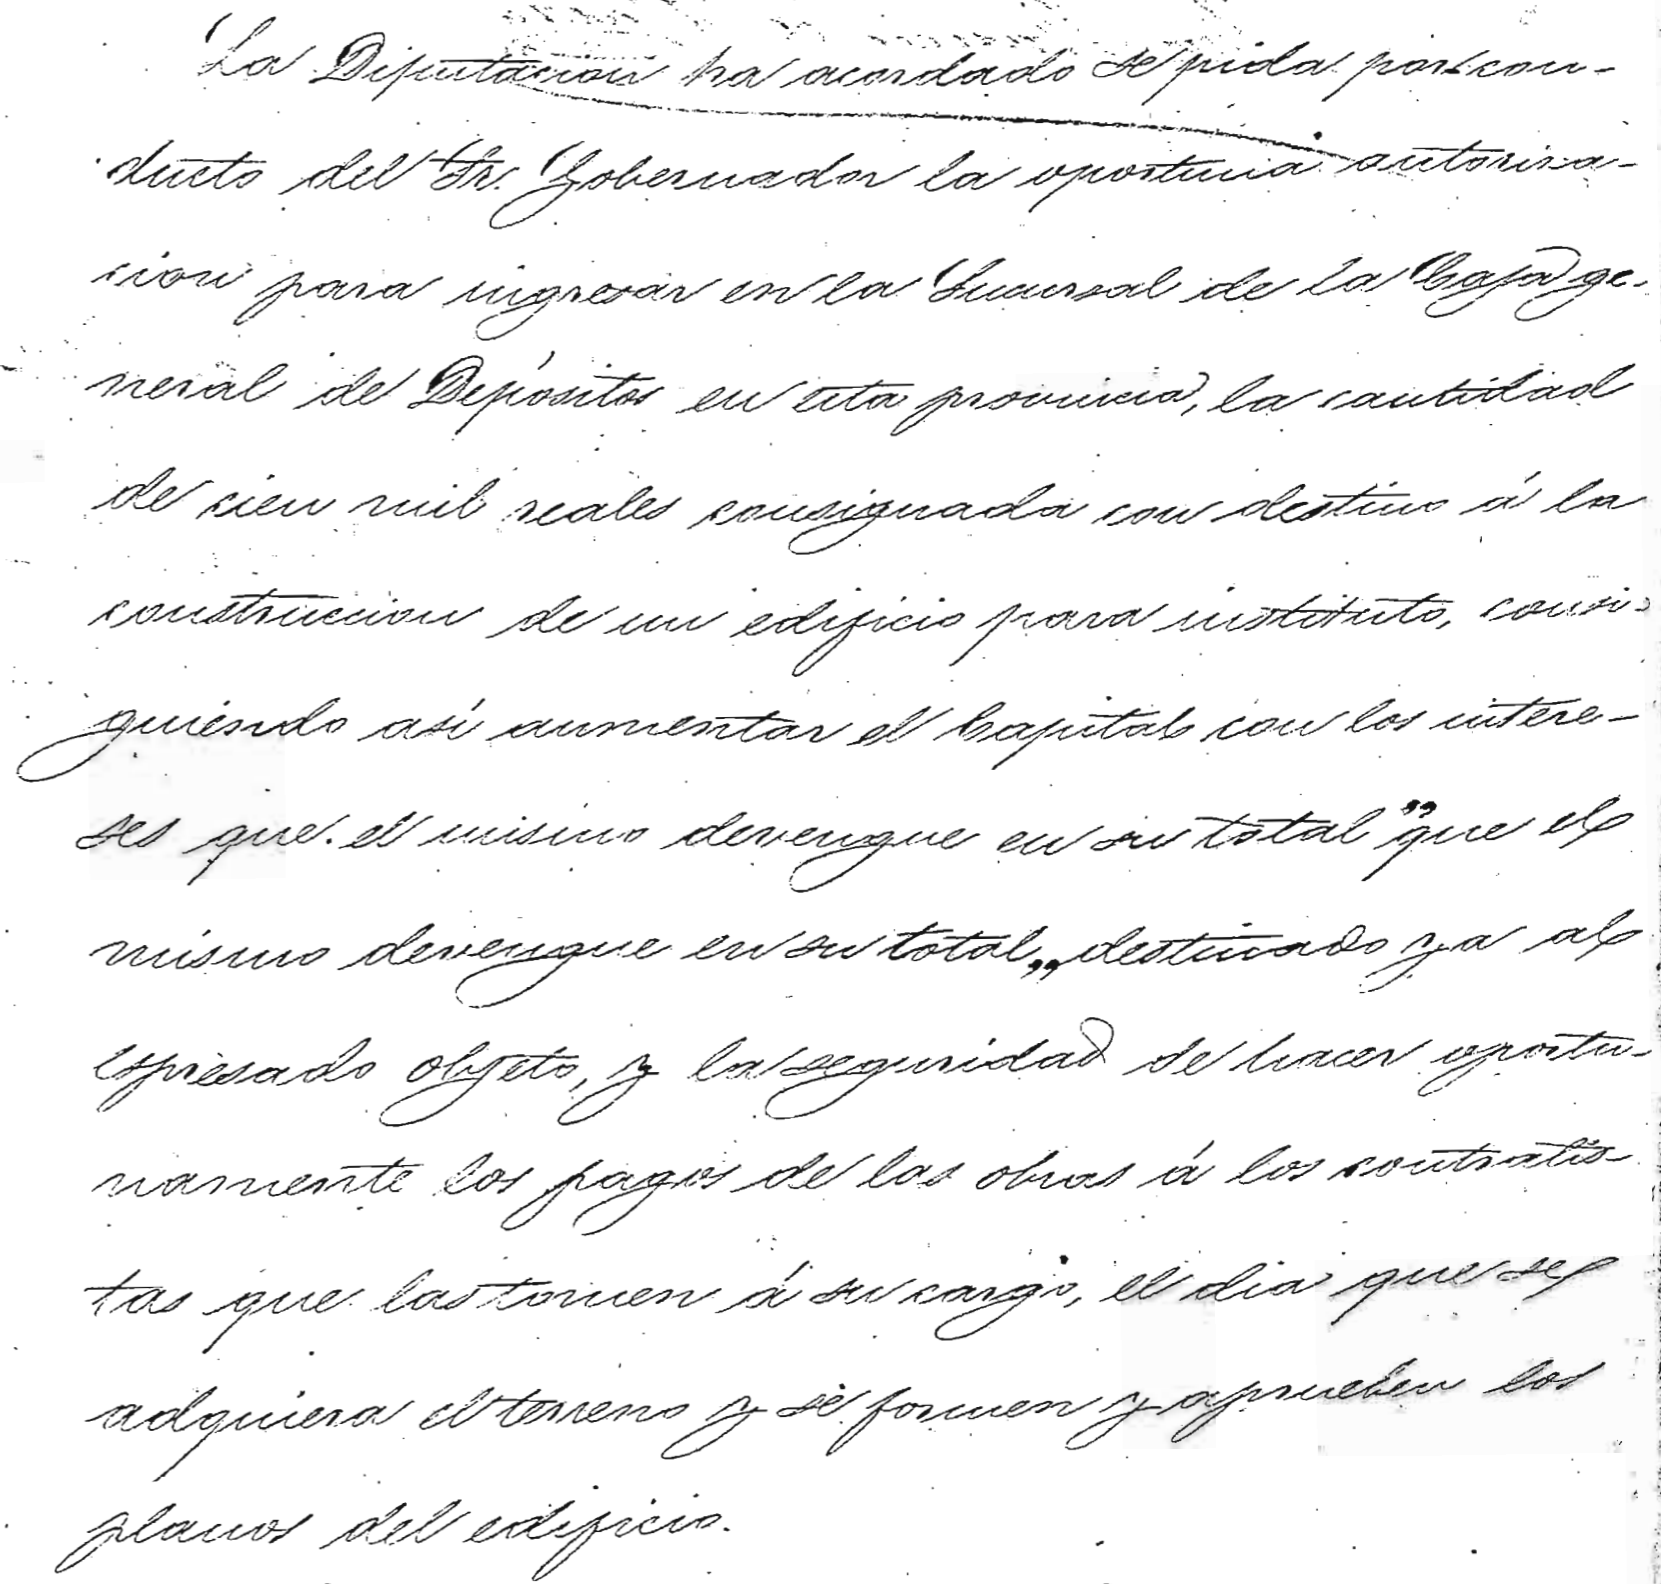 La Diputacion ha acordado se pida por con-
ducto del Sr. Gobernador la oportuna autoriza-
cion para ingresar en la Sucursal de la Caja ge-
neral de Depósitos en esta provincia, la cantidad
de cien mil reales consignada con destino á la
construccion de un edificio para instituto, consi-
guiendo asi aumentar el Capital con los intere-
ses que el mismo devengue en su total "que el
mismo devengue en su total„ destinado ya al
espresado objeto, y la seguridad de hacer oportu-
namente los pagos de las obras á los contratis-
tas que las tomen á su cargo, el dia que se
adquiera el terreno y se formen y aprueben los
planos del edificio.